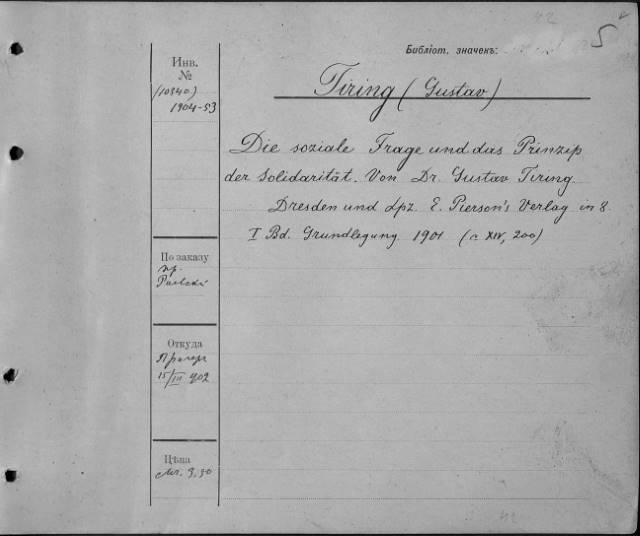 Библіот. значекъ: 5
Инв.
№
(10340)
1904-53
Tiring (Gustav)
Die soziale Frage und das Prinzip
der Solidarität. Von Dr. Gustav Tiring.
Dresden und Lpz. E. Pierson's Verlag in 8.
I Bd. Grundlegung. 1901 (c XIV, 200)
По заказу
пр.
Откуда
15/III 902
Цѣна